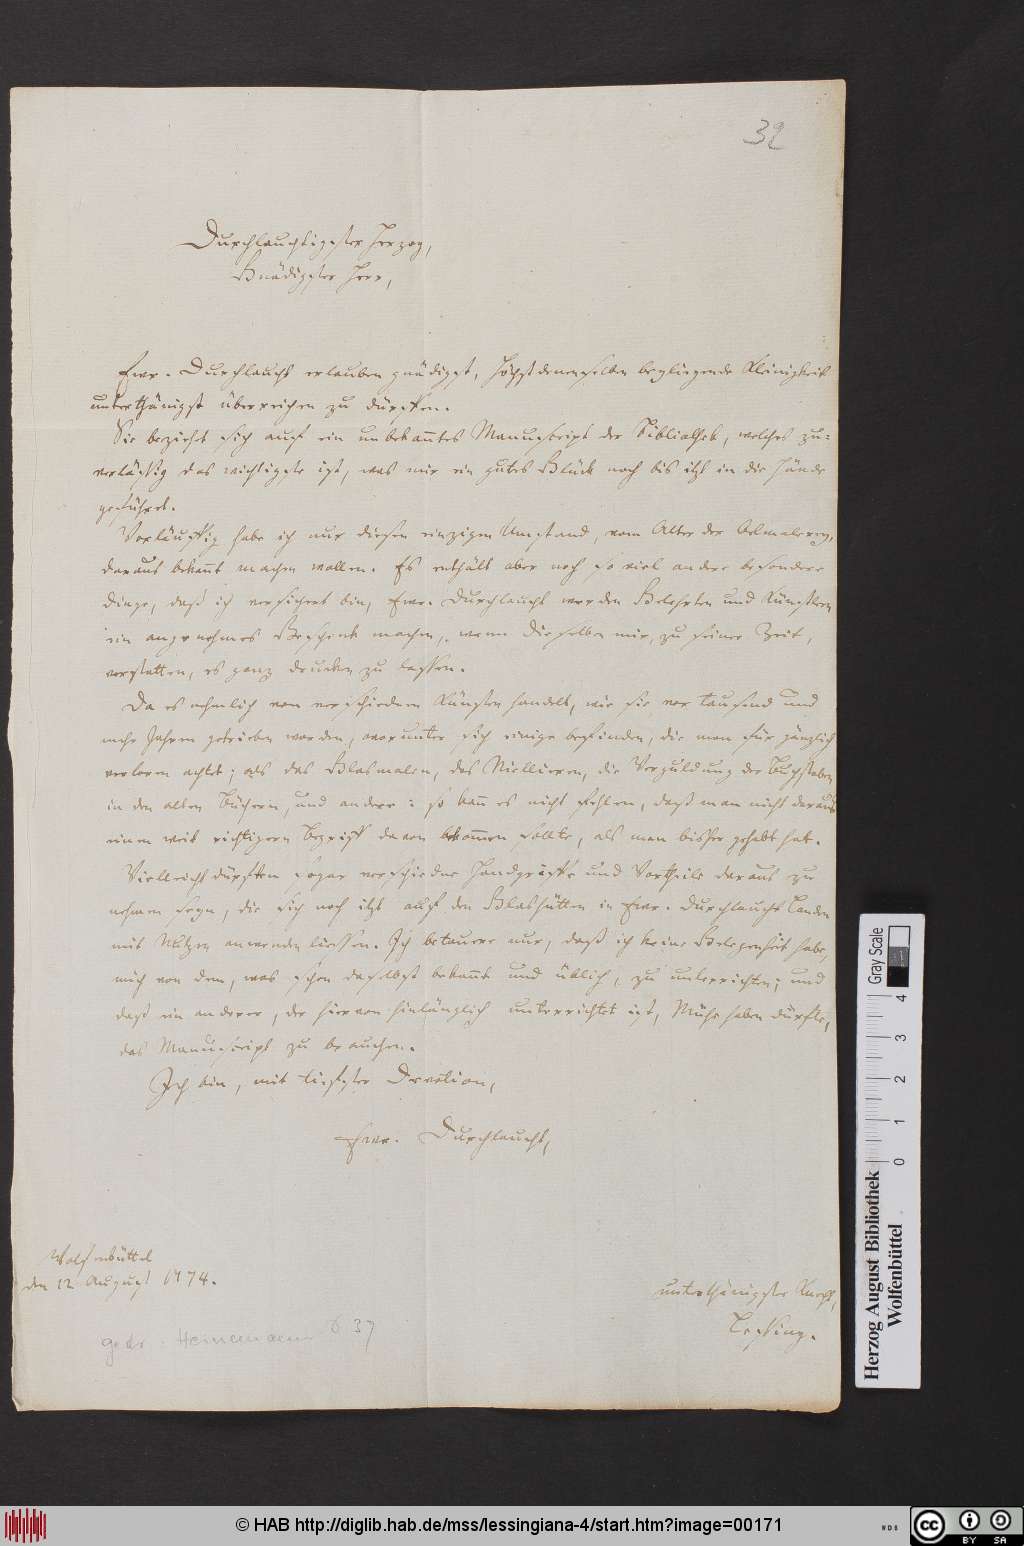 32
Durchlauchtigster Herzog,
Gnädigster Herr,
Ewr. Durchlaucht erlauben gnädigst, Höchstdenenselben beyliegende Kleinigkeit
unterthänigst überreichen zu dürffen.
Sie bezieht sich auf ein unbekanntes Manuscript der Bibliothek, welches zu-
verläßig das wichtigste ist, was mir ein gutes Glück noch bis itzt in die Hände
geführet.
Vorläuffig habe ich nur diesen einzigen Umstand, vom Alter der Oelmalerey,
daraus bekannt machen wollen. Es enthält aber noch so viel andere besondere
Dinge, daß ich versichert bin, Ewr. Durchlaucht werden Gelehrten und Künstlern
ein angenehmes Geschenk machen, wenn Dieselben mir, zu seiner Zeit,
verstatten, es ganz drucken zu lassen.
Da es nehmlich von verschiednen Künsten handelt, wie sie vor tausend und
mehr Jahren getrieben worden, worunter sich einige befinden, die man für gänzlich
verloren achtet; als das Glasmalen, das Niellieren, die Verguldung der Buchstaben
in den alten Büchern, und andere: so kann es nicht fehlen, daß man nicht daraus
einen weit richtigern Begriff davon bekommen sollte, als man bisher gehabt hat.
Vielleicht dürften sogar verschiedne Handgriffe und Vortheile daraus zu
nehmen seyn, die sich noch itzt auf den Glashütten in Ewr. Durchlaucht Landen
mit Nutzen anwenden liessen. Ich betauere nur, daß ich keine Gelegenheit habe,
mich von dem, was schon daselbst bekannt und üblich, zu unterrichten; und
daß ein anderer, der hiervon hinlänglich unterrichtet ist, Mühe haben dürfte,
das Manuscript zu brauchen.
Ich bin, mit tiefster Devotion,
Ewr. Durchlaucht,
Wolfenbüttel
den 12 August 1774.
unterthänigster Knecht,
Lessing.
gedr. Heinemann S 37
Herzog August Bibliothek
Wolfenbüttel
0 1 2 3 4
Gray Scale
© HAB http://diglib.hab.de/mss/lessingiana-4/start.htm?image=00171
WDB
cc BY SA